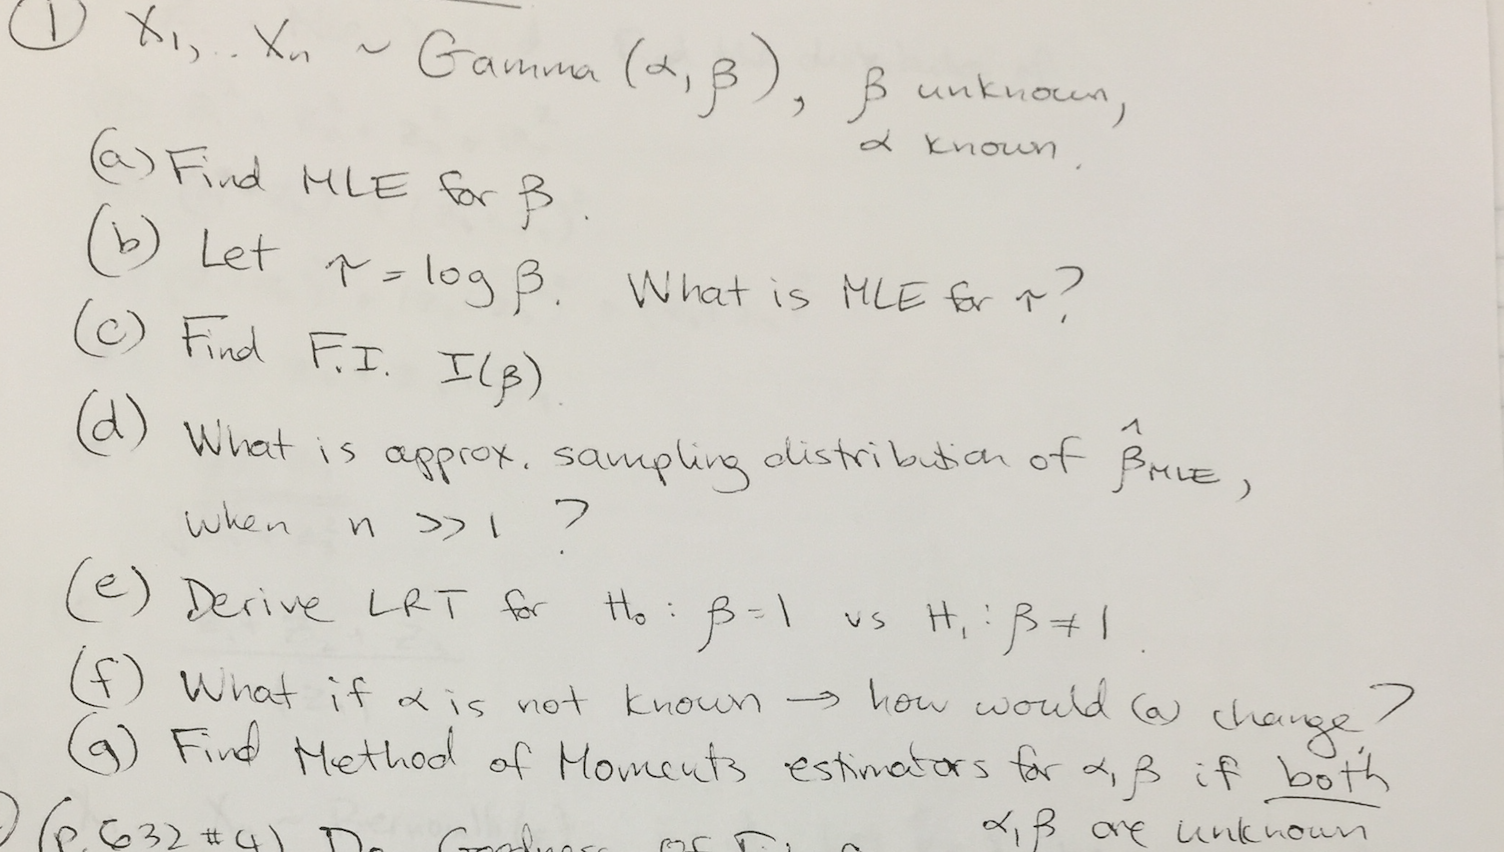 ① X₁,.. Xₙ ~ Gamma (α, β), β unknown,
α known.
(a) Find MLE for β.
(b) Let τ = log β. What is MLE for τ?
(c) Find F.I. I(β).
(d) What is approx. sampling distribution of β̂MLE,
when n >> 1 ?
(e) Derive LRT for H₀ : β = 1 vs H₁ : β ≠ 1.
(f) What if α is not known → how would (a) change?
(g) Find Method of Moments estimators for α, β if both
α, β are unknown
(p. 632 #4) Do Goodness of